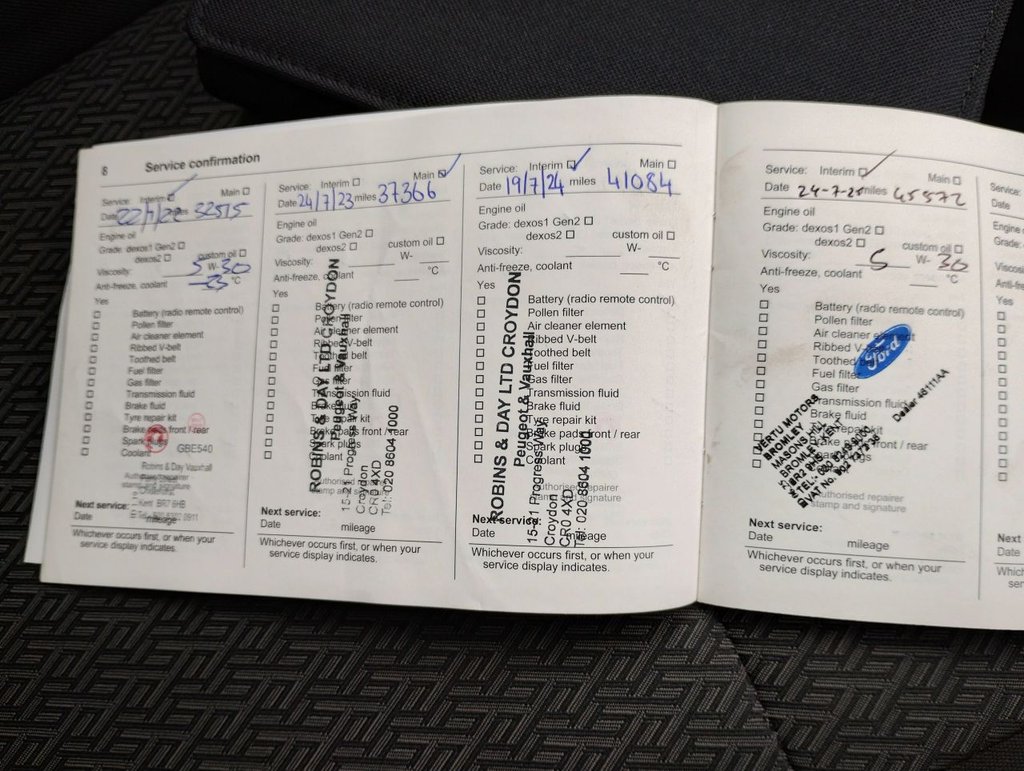 8 Service confirmation
Service: Interim Main
Date 22/7/22 miles 32515
Engine oil
Grade: dexos1 Gen2
dexos2 custom oil
Viscosity: 5 W- 30
Anti-freeze, coolant -25 °C
Yes
Battery (radio remote control)
Pollen filter
Air cleaner element
Ribbed V-belt
Toothed belt
Fuel filter
Gas filter
Transmission fluid
Brake fluid
Tyre repair kit
Brake pads front / rear
Spark plugs
Coolant GBE540
Robins & Day Vauxhall
Authorised repairer
stamp and signature
Kent BR7 6HB
Next service:
Date mileage
Whichever occurs first, or when your
service display indicates.
Service: Interim Main
Date 24/7/23 miles 37366
Engine oil
Grade: dexos1 Gen2
dexos2 custom oil
Viscosity: W-
Anti-freeze, coolant °C
Yes
Battery (radio remote control)
Pollen filter
Air cleaner element
Ribbed V-belt
Toothed belt
Fuel filter
Gas filter
Transmission fluid
Brake fluid
Tyre repair kit
Brake pads front / rear
Spark plugs
Coolant
ROBINS & DAY LTD CROYDON
Peugeot & Vauxhall
15-21 Progress Way
Croydon
CR0 4XD
Tel: 020 8604 1000
Authorised repairer
stamp and signature
Next service:
Date mileage
Whichever occurs first, or when your
service display indicates.
Service: Interim Main
Date 19/7/24 miles 41084
Engine oil
Grade: dexos1 Gen2
dexos2 custom oil
Viscosity: W-
Anti-freeze, coolant °C
Yes
Battery (radio remote control)
Pollen filter
Air cleaner element
Ribbed V-belt
Toothed belt
Fuel filter
Gas filter
Transmission fluid
Brake fluid
Tyre repair kit
Brake pads front / rear
Spark plugs
Coolant
ROBINS & DAY LTD CROYDON
Peugeot & Vauxhall
15-21 Progress Way
Croydon
CR0 4XD
Tel: 020 8604 1000
Authorised repairer
stamp and signature
Next service:
Date mileage
Whichever occurs first, or when your
service display indicates.
Service: Interim Main
Date 24-7-25 miles 45572
Engine oil
Grade: dexos1 Gen2
dexos2 custom oil
Viscosity: 5 W- 30
Anti-freeze, coolant °C
Yes
Battery (radio remote control)
Pollen filter
Air cleaner element
Ribbed V-belt
Toothed belt
Fuel filter
Gas filter
Transmission fluid
Brake fluid
front / rear
Ford
Dealer 46111AA
VERTU MOTORS
BROMLEY
MASONS HILL
BROMLEY
Authorised repairer
stamp and signature
Next service:
Date mileage
Whichever occurs first, or when your
service display indicates.
Service:
Date
Engine
Grade:
Yes
Next
Date